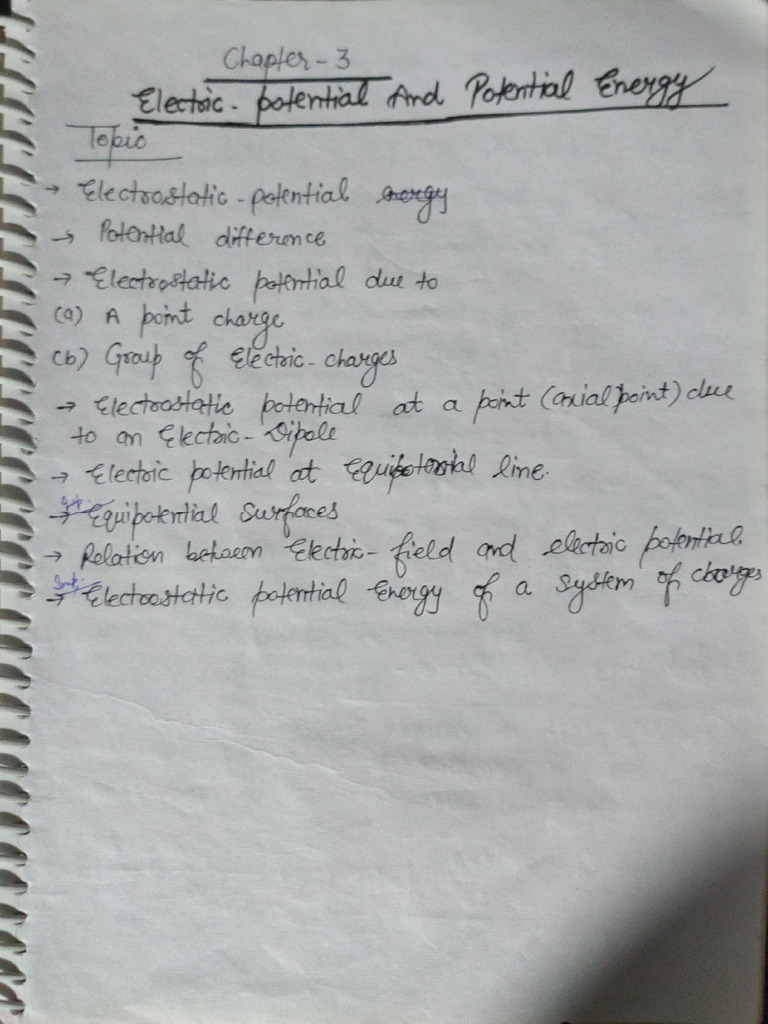 Chapter - 3
Electric - potential And Potential Energy
Topic
→ Electrostatic - potential energy
→ Potential difference
→ Electrostatic potential due to
(a) A point charge
(b) Group of Electric - charges
→ Electrostatic potential at a point (axial point) due
to an Electric - Dipole
→ Electric potential at Equipotential line.
→ Equipotential Surfaces
→ Relation between Electric - field and electric potential.
→ Electrostatic potential Energy of a system of charges